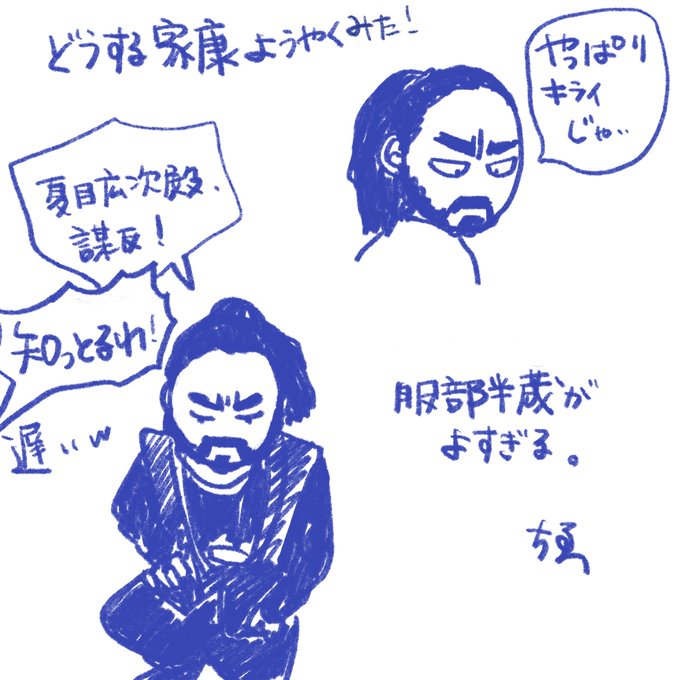 どうする家康ようやくみた!
やっぱり
キライ
じゃ‥
夏目広次殿、
謀反!
知っとるわ!
遅いw
服部半蔵が
よすぎる。